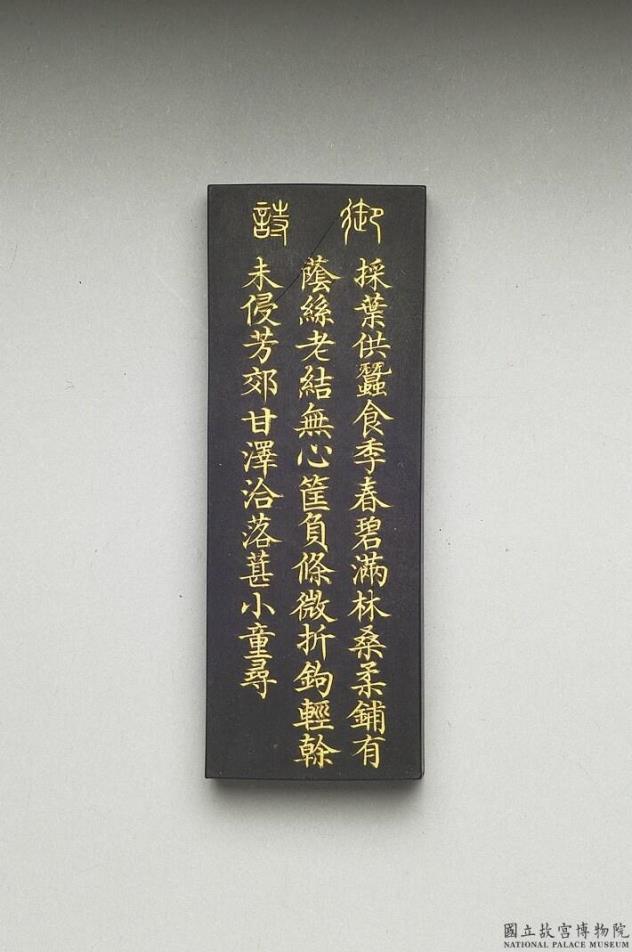 御詩
採葉供蠶食季春碧滿林桑柔鋪有
蔭絲老結無心筐負條微折鉤輕榦
未侵芳郊甘澤洽落葚小童尋
國立故宮博物院
NATIONAL PALACE MUSEUM